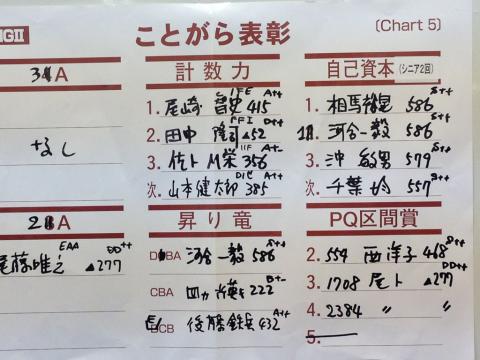 GⅡ
ことがら表彰
(Chart 5)
3A
なし
2A
EAA DD++
尾藤唯之 ▲277
計数力
IFE A++
1. 尾崎 昌史 415
FFI D++
2. 田中 隆司 ▲52
IIF A-
3. 佐ト M栄 356
DIE A±
次. 山本健太郎 385
昇り竜
S++
DBA 河合一毅 586
B+-
CBA 222
A++
BCB 後藤鉄兵 432
自己資本(シニア2回)
S++
1. 相馬裕晃 586
S++
1. 河合一毅 586
S++
3. 沖 敏男 579
S++
次. 千葉 557
PQ区間賞
S++
2. 554 西洋子 468
DD++
3. 1708 尾ト ▲277
4. 2384 〃 〃
5.